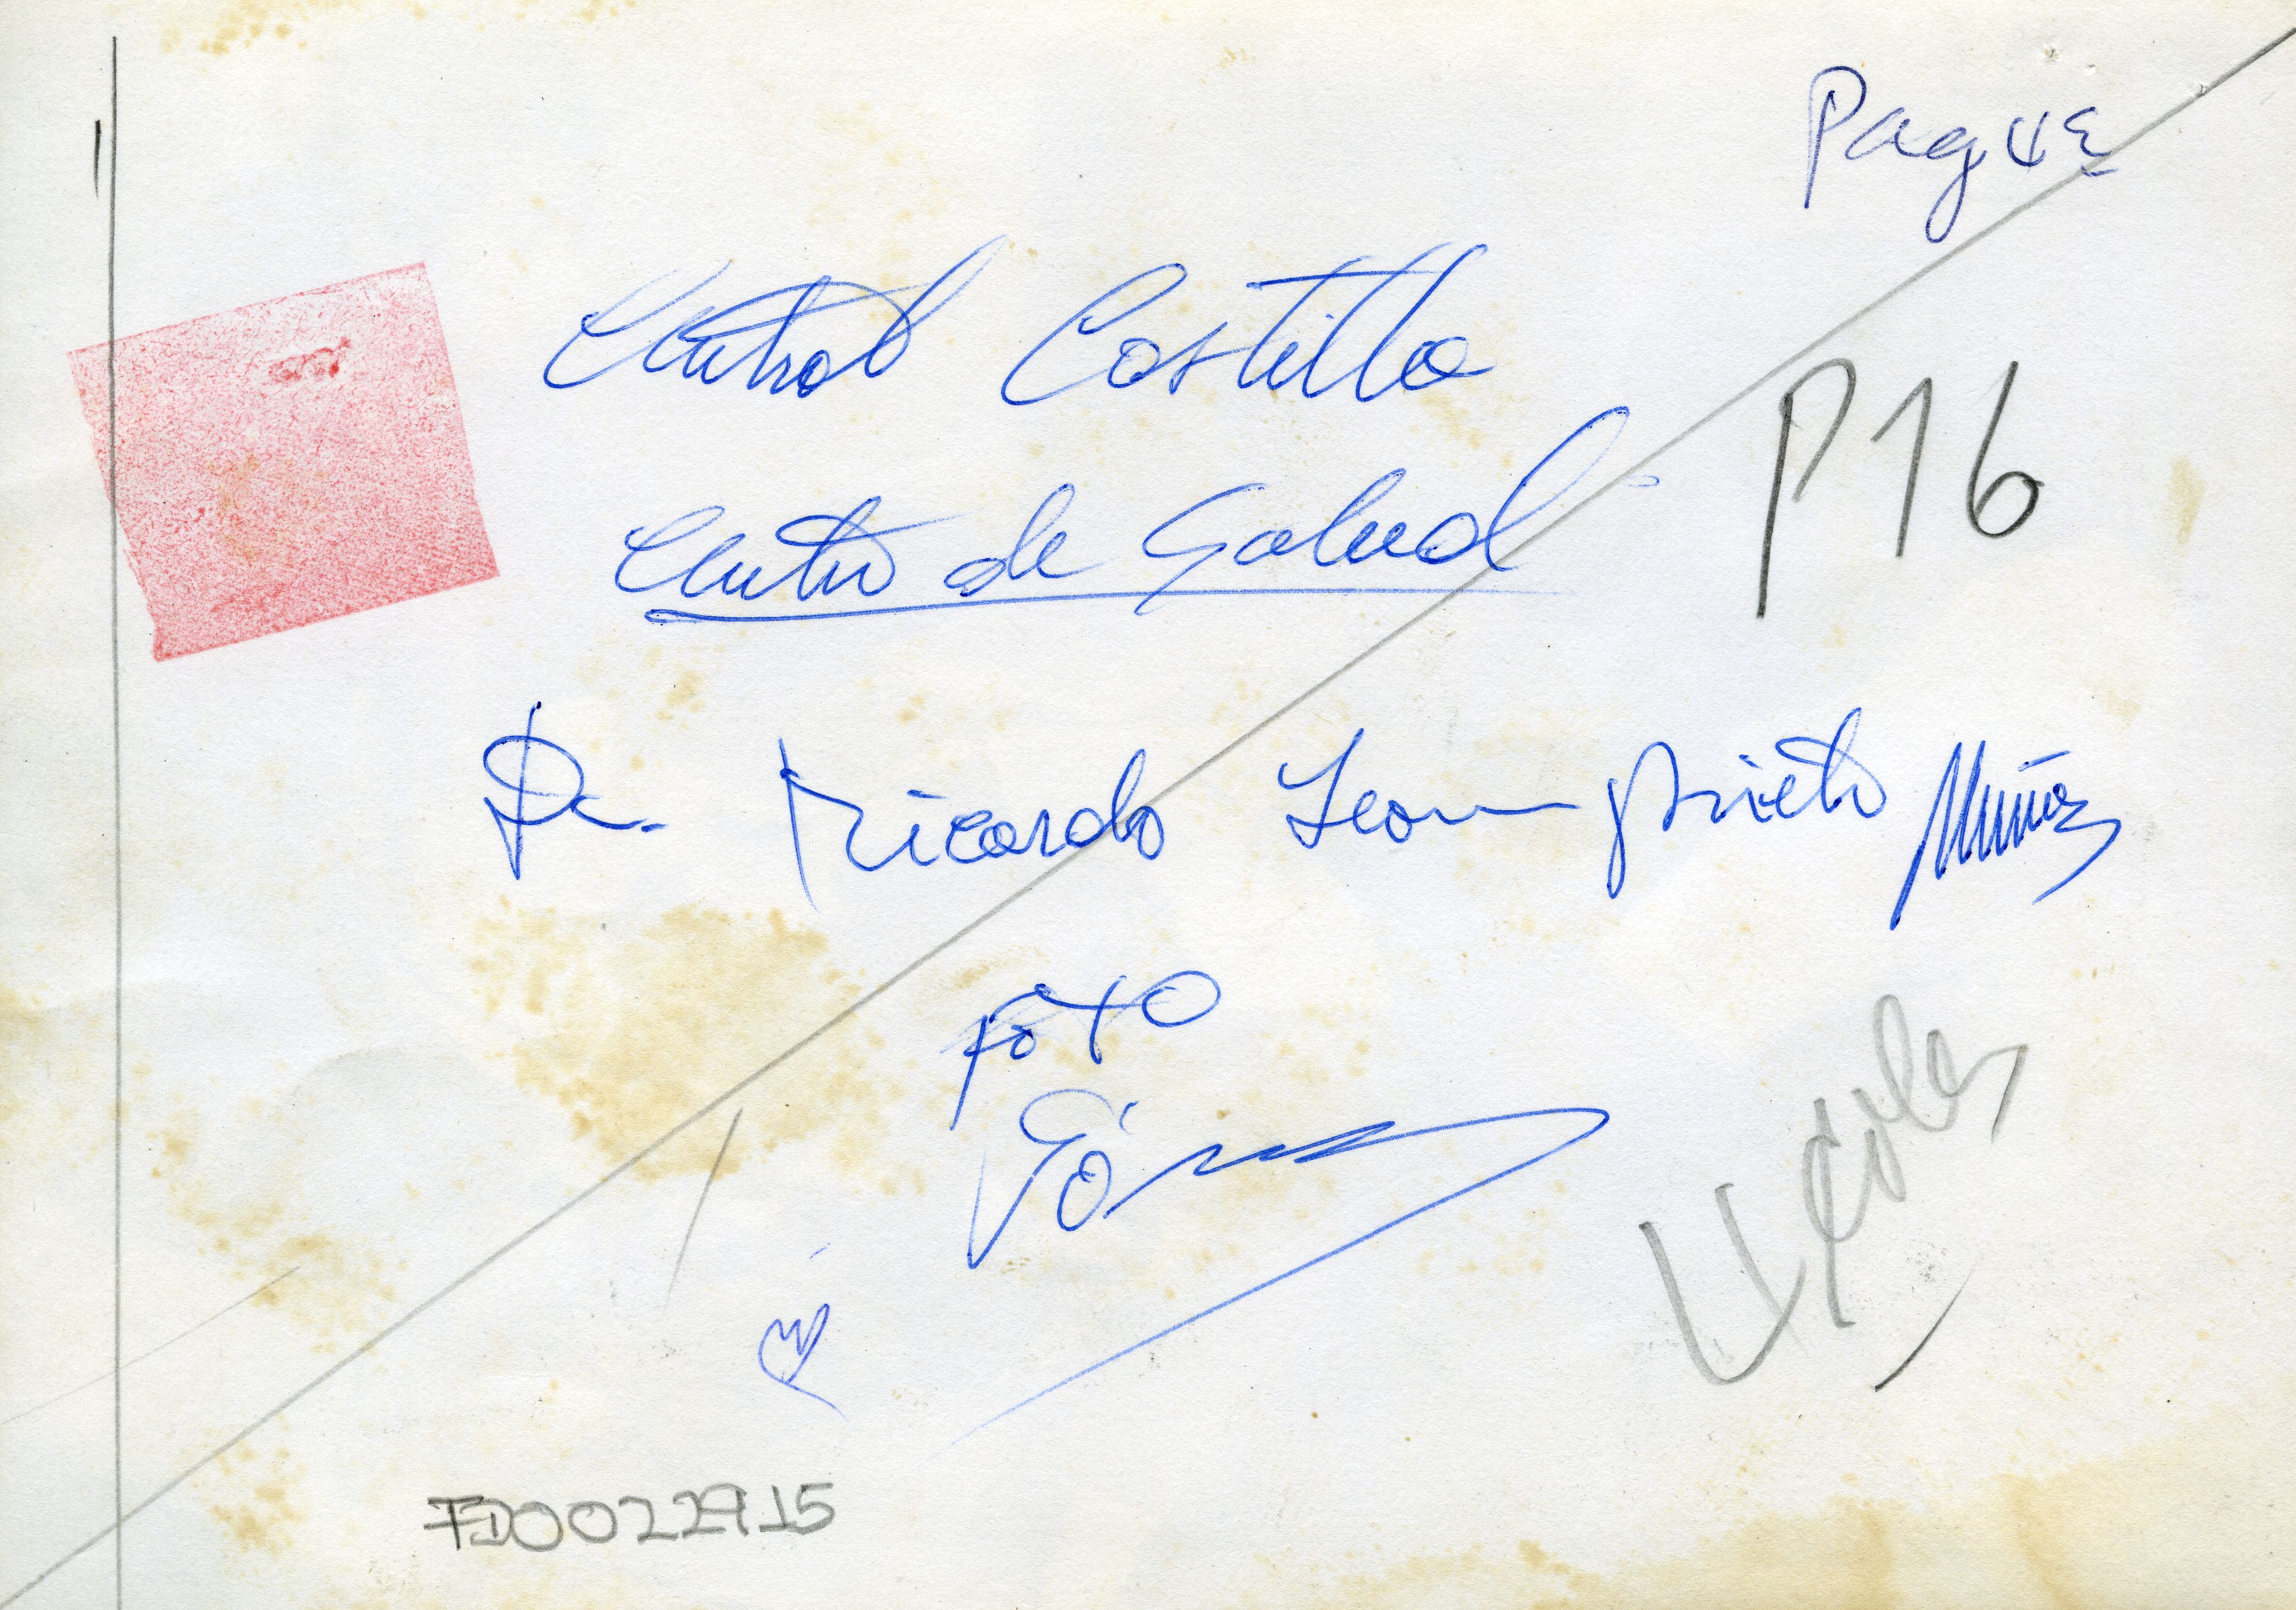 Pague
Central Castilla
P16
Centro de Salud
Dr. Ricardo Leon Prieto Muñoz
Foto
FD0022915